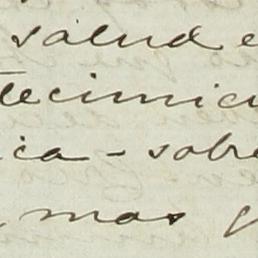 salud e
tecimie
ica - sobre
mas